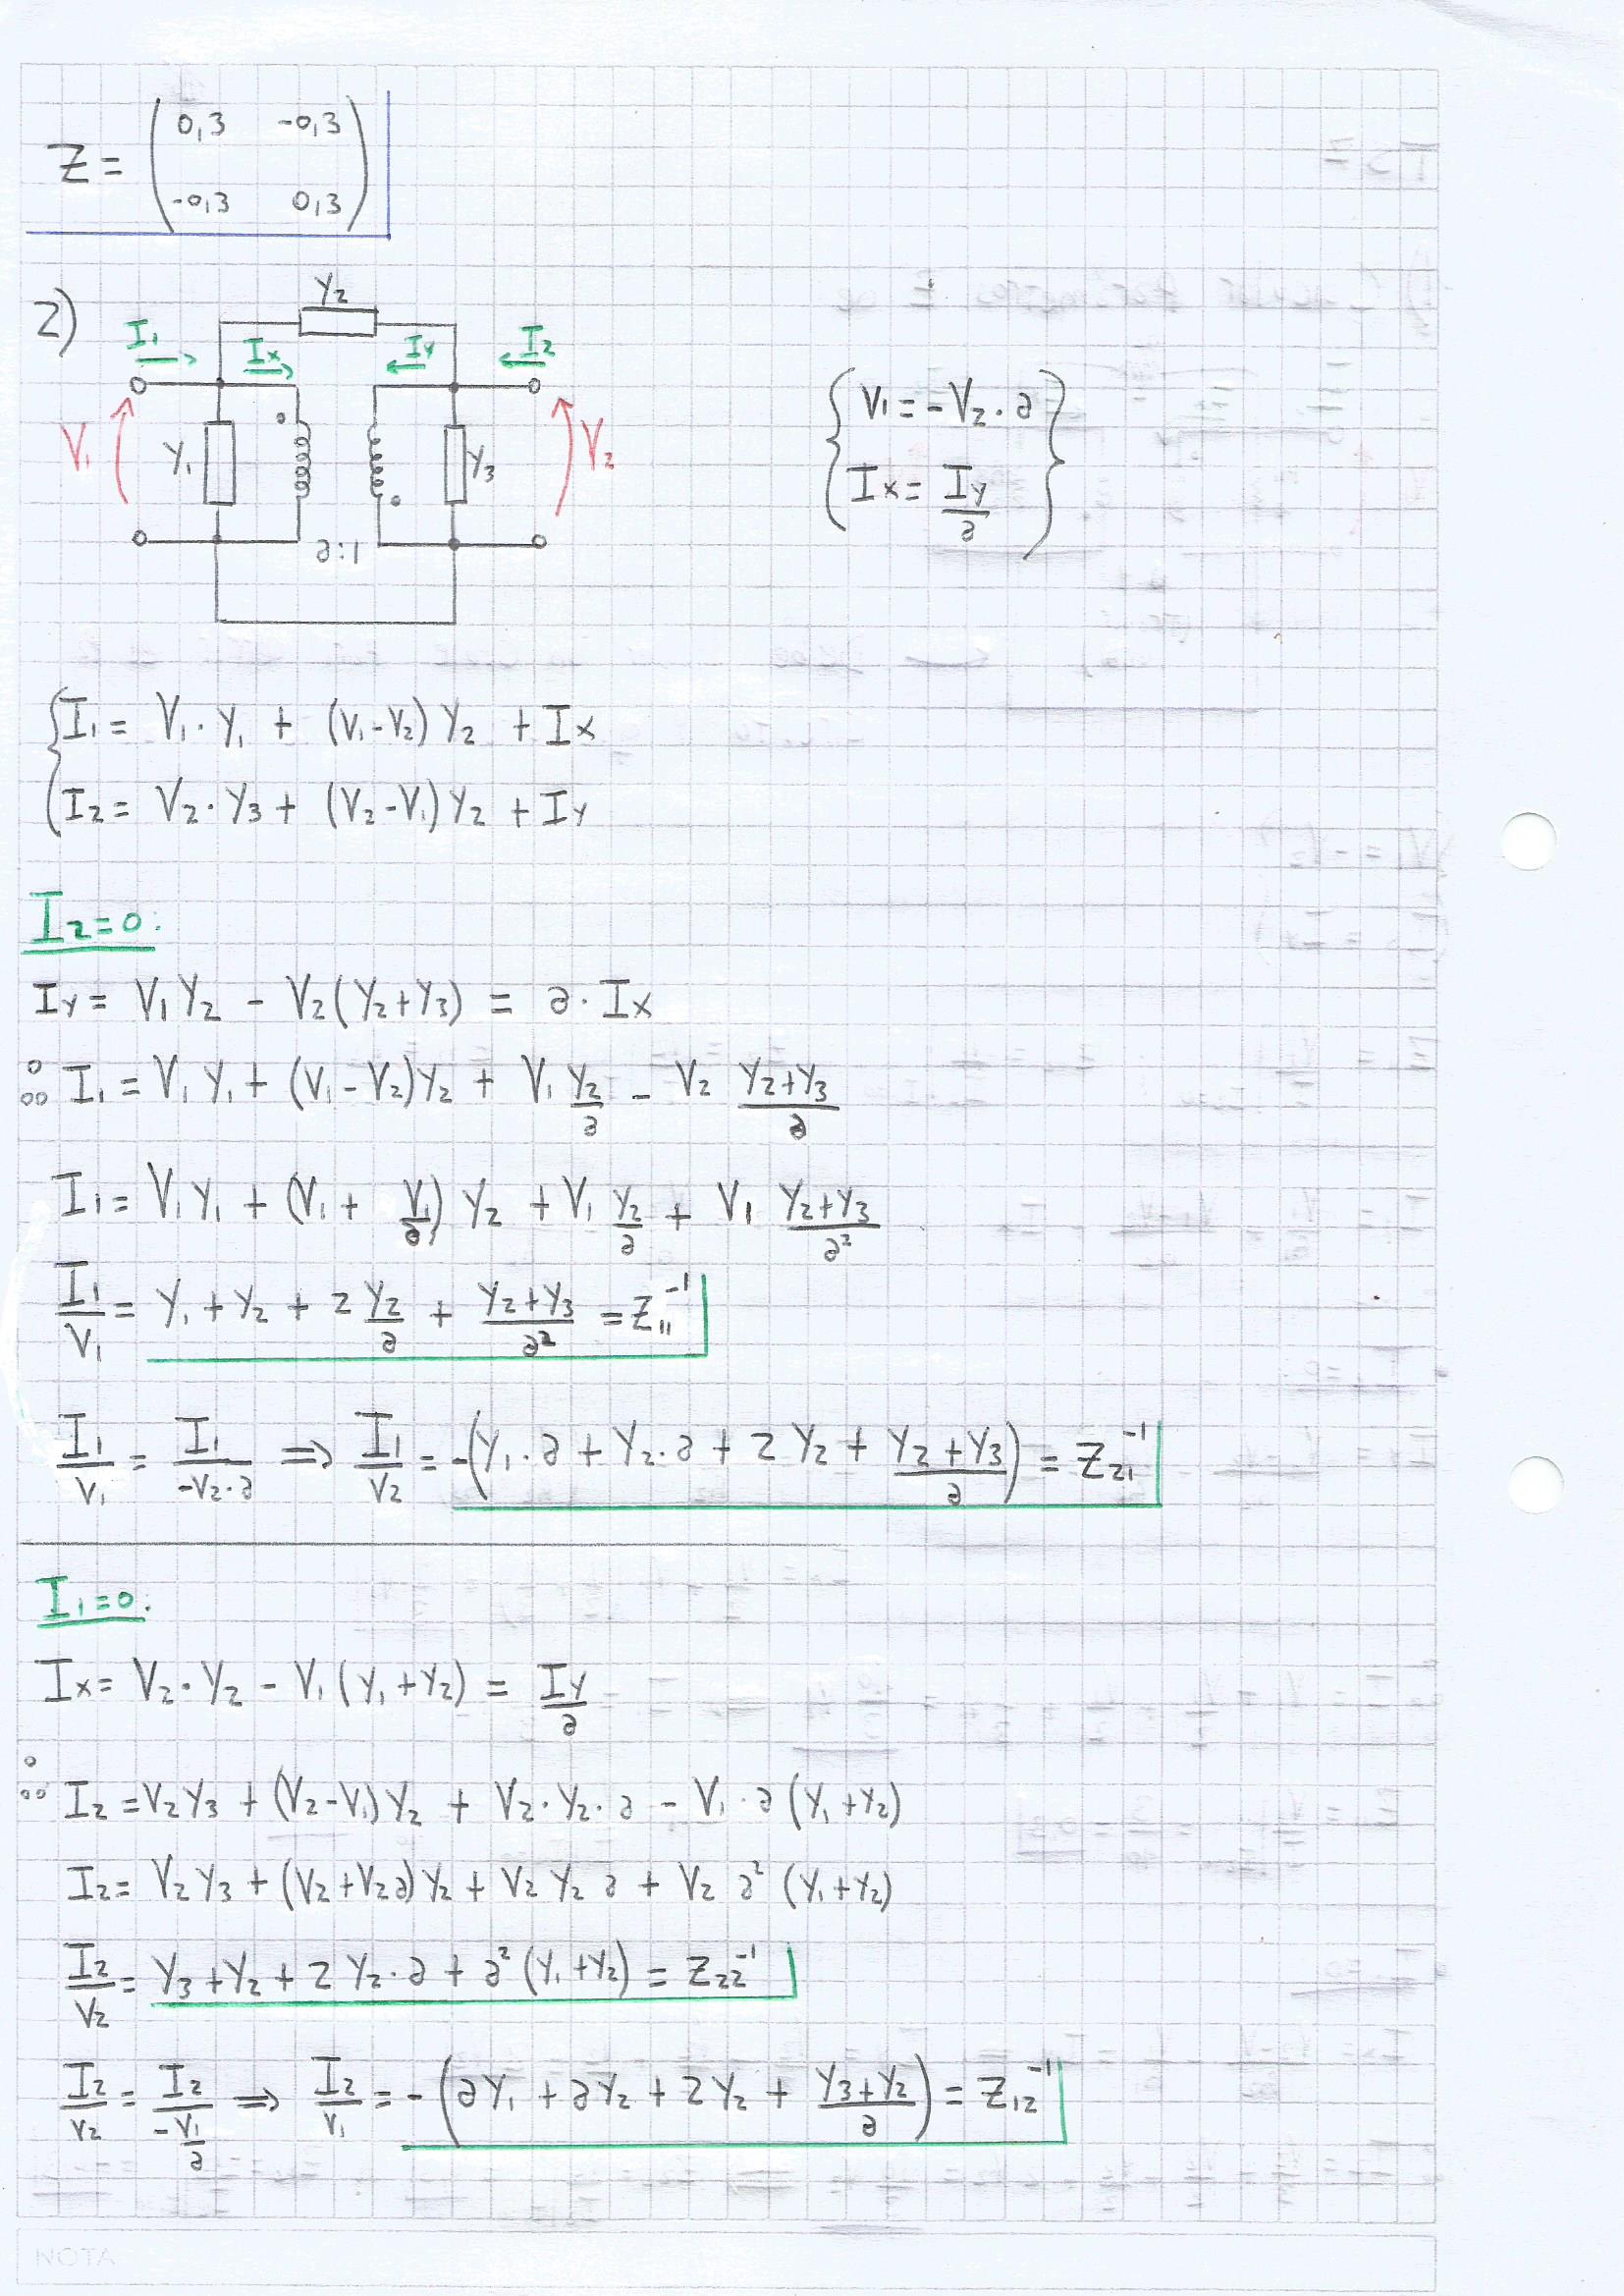 Z = ( 0,3 -0,3
-0,3 0,3 )
2)
Y₂
I₁ Ix Iy I₂
V₁ Y₁ Y₃ V₂
a:1
{ V₁ = -V₂ · a
Ix = Iy/a }
{ I₁ = V₁ · Y₁ + (V₁-V₂) Y₂ + Ix
I₂ = V₂ · Y₃ + (V₂-V₁) Y₂ + Iy
I₂=0:
Iy = V₁ Y₂ - V₂ (Y₂+Y₃) = a · Ix
∴ I₁ = V₁ Y₁ + (V₁-V₂) Y₂ + V₁ Y₂/a - V₂ (Y₂+Y₃)/a
I₁ = V₁ Y₁ + (V₁ + V₁/a) Y₂ + V₁ Y₂/a + V₁ (Y₂+Y₃)/a²
I₁/V₁ = Y₁ + Y₂ + 2 Y₂/a + (Y₂+Y₃)/a² = Z₁₁⁻¹
I₁/V₁ = I₁/(-V₂·a) ⟹ I₁/V₂ = -(Y₁·a + Y₂·a + 2 Y₂ + (Y₂+Y₃)/a) = Z₂₁⁻¹
I₁=0:
Ix = V₂·Y₂ - V₁ (Y₁+Y₂) = Iy/a
∴ I₂ = V₂Y₃ + (V₂-V₁)Y₂ + V₂·Y₂·a - V₁·a (Y₁+Y₂)
I₂ = V₂Y₃ + (V₂+V₂a)Y₂ + V₂ Y₂ a + V₂ a² (Y₁+Y₂)
I₂/V₂ = Y₃+Y₂ + 2 Y₂·a + a² (Y₁+Y₂) = Z₂₂⁻¹
I₂/V₂ = I₂/(-V₁/a) ⟹ I₂/V₁ = -(aY₁ + aY₂ + 2Y₂ + (Y₃+Y₂)/a) = Z₁₂⁻¹
NOTA